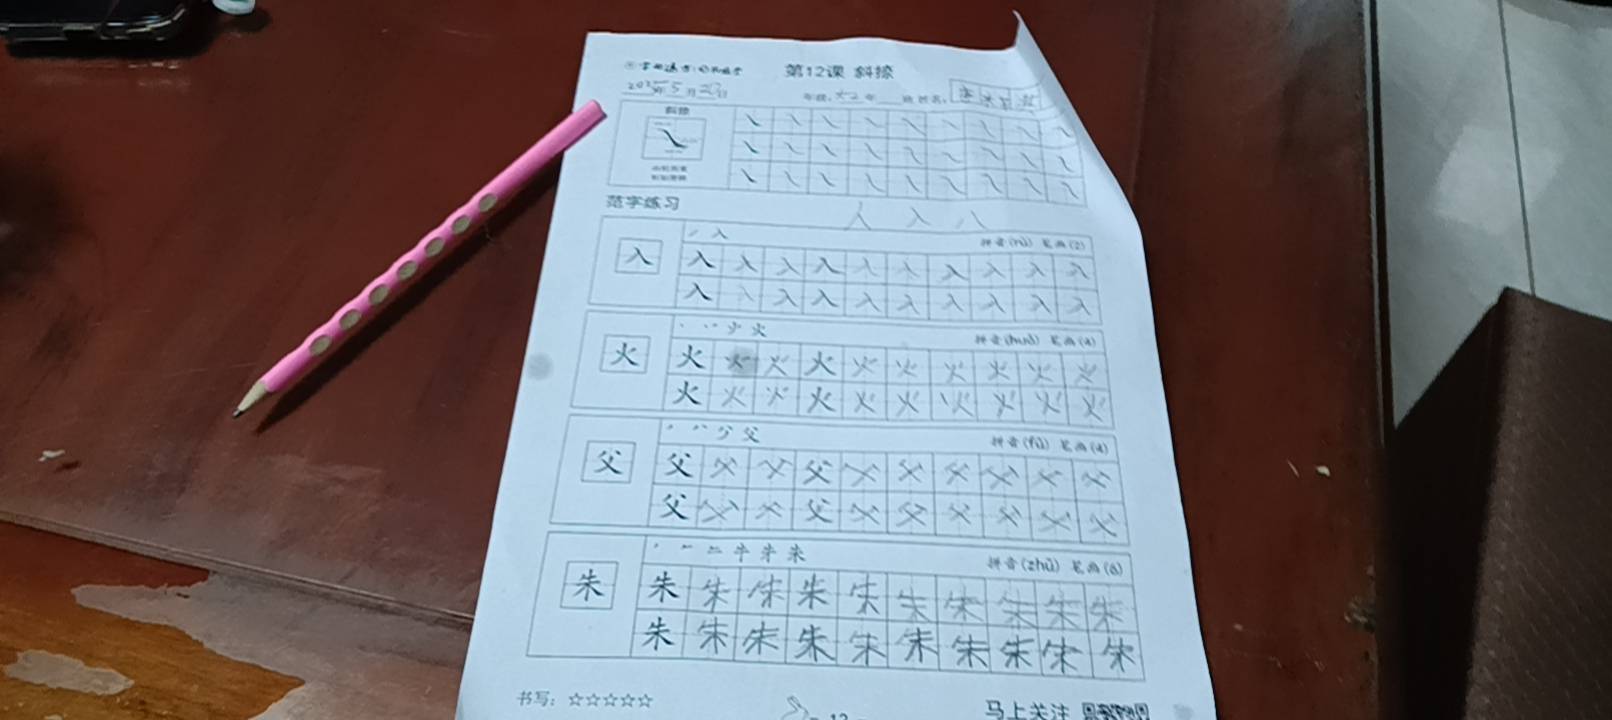 第12课 斜捺
年 5 月 日
年级: 年 班 姓名:
斜捺
范字练习
人 入 八
丿 入 拼音(rù) 笔画(2)
入 入 入 入 入 入 入 入 入 入 入
入 入 入 入 入 入 入 入 入 入
火 拼音(huǒ) 笔画(4)
火 火 火 火 火 火 火 火 火 火 火
火 火 火 火 火 火 火 火 火 火
父 拼音(fù) 笔画(4)
父 父 父 父 父 父 父 父 父 父 父
父 父 父 父 父 父 父 父 父 父
朱 拼音(zhū) 笔画(6)
朱 朱 朱 朱 朱 朱 朱 朱 朱 朱 朱
朱 朱 朱 朱 朱 朱 朱 朱 朱 朱
书写: ☆☆☆☆☆
12
马上关注